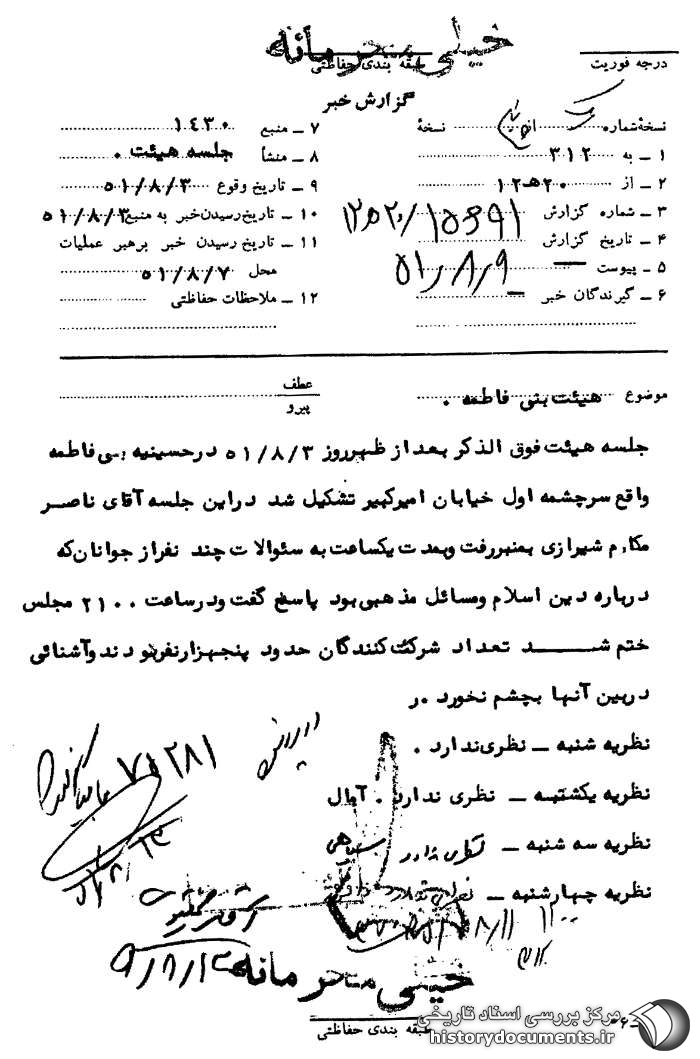 خیلی محرمانه
درجه فوریت
طبقه بندی حفاظتی
گزارش خبر
نسخه شماره از نسخهٔ
۱ ـ به ۳۱۲
۲ ـ از ۲۰هـ۱۲
۳ ـ شماره گزارش
۴ ـ تاریخ گزارش
۵ ـ پیوست
۵۱/۸/۹
۶ ـ گیرندگان خبر
۷ ـ منبع ۱۴۳۰
۸ ـ منشأ جلسه هیئت .
۹ ـ تاریخ وقوع ۵۱/۸/۳
۱۰ ـ تاریخ رسیدن خبر به منبع ۵۱/۸/۳
۱۱ ـ تاریخ رسیدن خبر برهبر عملیات
محل ۵۱/۸/۷
۱۲ ـ ملاحظات حفاظتی
موضوع هیئت بنی فاطمه .
عطف
پیرو
جلسه هیئت فوق الذکر بعد از ظهر روز ۵۱/۸/۳ در حسینیه بنی فاطمه
واقع سرچشمه اول خیابان امیرکبیر تشکیل شد در این جلسه آقای ناصر
مکارم شیرازی بمنبر رفت و بمدت یکساعت به سئوالات چند نفر از جوانان که
درباره دین اسلام ومسائل مذهبی بود پاسخ گفت ودر ساعت ۲۱۰۰ مجلس
ختم شد تعداد شرکت کنندگان حدود پنجهزار نفر بودند وآشنائی
در بین آنها بچشم نخورد .ر
نظریه شنبه ـ نظری ندارد .
نظریه یکشنبه ـ نظری ندارد . آمال
نظریه سه شنبه ـ
نظریه چهارشنبه ـ
۷۱۲۸۱
خیلی محرمانه
طبقه بندی حفاظتی
مرکز بررسی اسناد تاریخی
historydocuments.ir